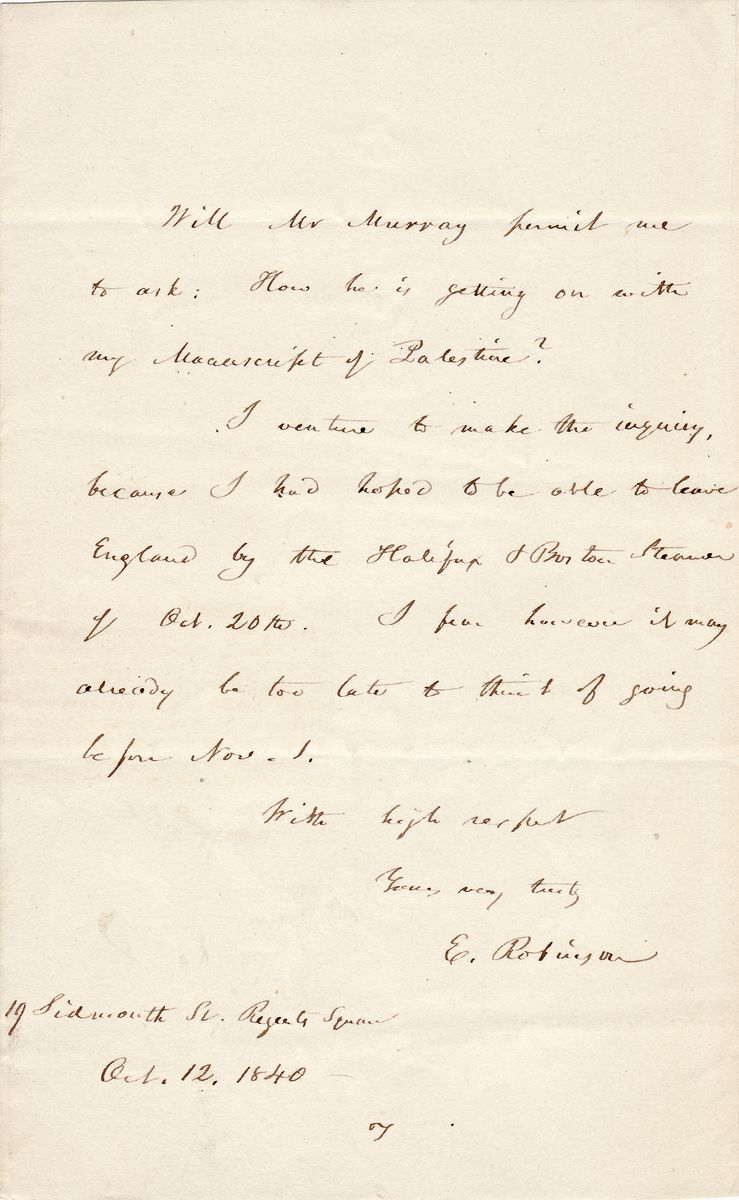 Will Mr Murray permit me
to ask: How he is getting on with
my Manuscript of Palestine?
I venture to make the inquiry,
because I had hoped to be able to leave
England by the Halifax & Boston Steamer
of Oct. 20th. I fear however it may
already be too late to think of going
before Nov. 1.
With high respect
Yours very truly
E. Robinson
19 Sidmouth St. Regents Square
Oct. 12. 1840